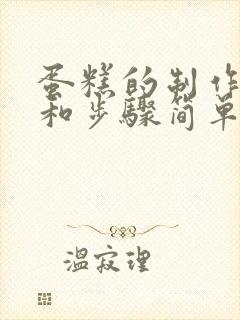 蛋糕的制作
和步骤简单
温寂理